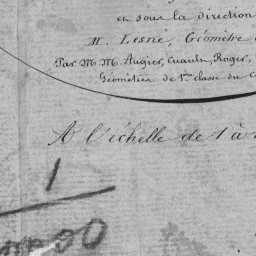 et sous la direction
M. Lesné, Géomètre
Par M.M. Augier, Cuautn, Roger,
Géomètres de 1ère classe du C
A l'échelle de 1 à
1
00